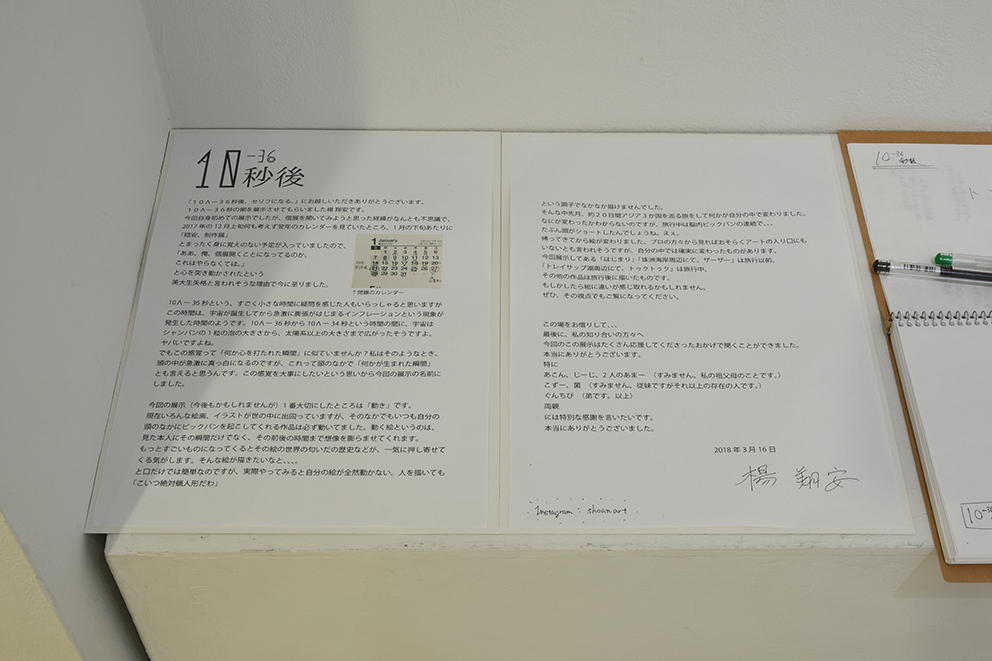 10⁻³⁶
秒後
「１０Λ－３６秒後、セリフになる。」にお越しいただきありがとうございます。
１０Λ－３６秒の間を展示させてもらいました楊 翔安です。
今回自身初めての展示でしたが、個展を開いてみようと思った経緯がなんとも不思議で、
2017年の12月上旬何も考えず翌年のカレンダーを見ていたところ、１月の下旬あたりに
「翔安、制作展」
とまったく身に覚えのない予定が入っていましたので、
「ああ、俺、個展開くことになってるのか、
これはやらなくては。」
と心を突き動かされたという
美大生失格と言われそうな理由で今に至りました。
1 January
↑問題のカレンダー
10Λ－36秒という、すごく小さな時間に疑問を感じた人もいらっしゃると思いますが
この時間は、宇宙が誕生してから急激に膨張がはじまるインフレーションという現象が
発生した時間のようです。10Λ－36秒から10Λ－34秒という時間の間に、宇宙は
シャンパンの１粒の泡の大きさから、太陽系以上の大きさまで広がったそうですよ。
ヤバいですよね。
でもこの感覚って「何か心を打たれた瞬間」に似ていませんか？私はそのようなとき、
頭の中が急激に真っ白になるのですが、これって頭のなかで「何かが生まれた瞬間」
とも言えると思うんです。この感覚を大事にしたいという思いから今回の展示の名前に
しました。
今回の展示（今後もかもしれませんが）１番大切にしたところは「動き」です。
現在いろんな絵画、イラストが世の中に出回っていますが、そのなかでもいつも自分の
頭のなかにビックバンを起こしてくれる作品は必ず動いてました。動く絵というのは、
見た本人にその瞬間だけでなく、その前後の時間まで想像を膨らませてくれます。
もっとすごいものになってくるとその絵の世界の匂いだの歴史などが、一気に押し寄せて
くる気がします。そんな絵が描きたいなと、、、、
と口だけでは簡単なのですが、実際やってみると自分の絵が全然動かない。人を描いても
「こいつ絶対蝋人形だわ」
という調子でなかなか描けませんでした。
そんな中先月、約２０日間アジア３か国を巡る旅をして何かが自分の中で変わりました。
なにが変わったかわからないのですが、旅行中は脳内ビックバンの連続で、、、
たぶん頭がショートしたんでしょうね。えぇ。
帰ってきてから絵が変わりました。プロの方々から見ればおそらくアートの入り口にも
いないとも言われそうですが、自分の中では確実に変わったものがあります。
今回展示してある「はじまり」「珠洲海岸周辺にて、ザーザー」は旅行以前、
「トレイサップ湖周辺にて、トゥクトゥク」は旅行中、
その他の作品は旅行後に描いたものです。
もしかしたら絵に違いが感じ取れるかもしれません。
ぜひ、その視点でもご覧になってください。
この場をお借りして、、、
最後に、私の知り合いの方々へ
今回のこの展示はたくさん応援してくださったおかげで開くことができました。
本当にありがとうございます。
特に
あこん、じーじ、２人のあまー　（すみません、私の祖父母のことです。）
こずー、菌　（すみません、従妹ですがそれ以上の存在の人です。）
ぐんちび　（弟です。以上）
両親
には特別な感謝を言いたいです。
本当にありがとうございました。
2018年3月16日
楊 翔安
Instagram : shoanart
10⁻³⁶
秒後
10⁻³⁶